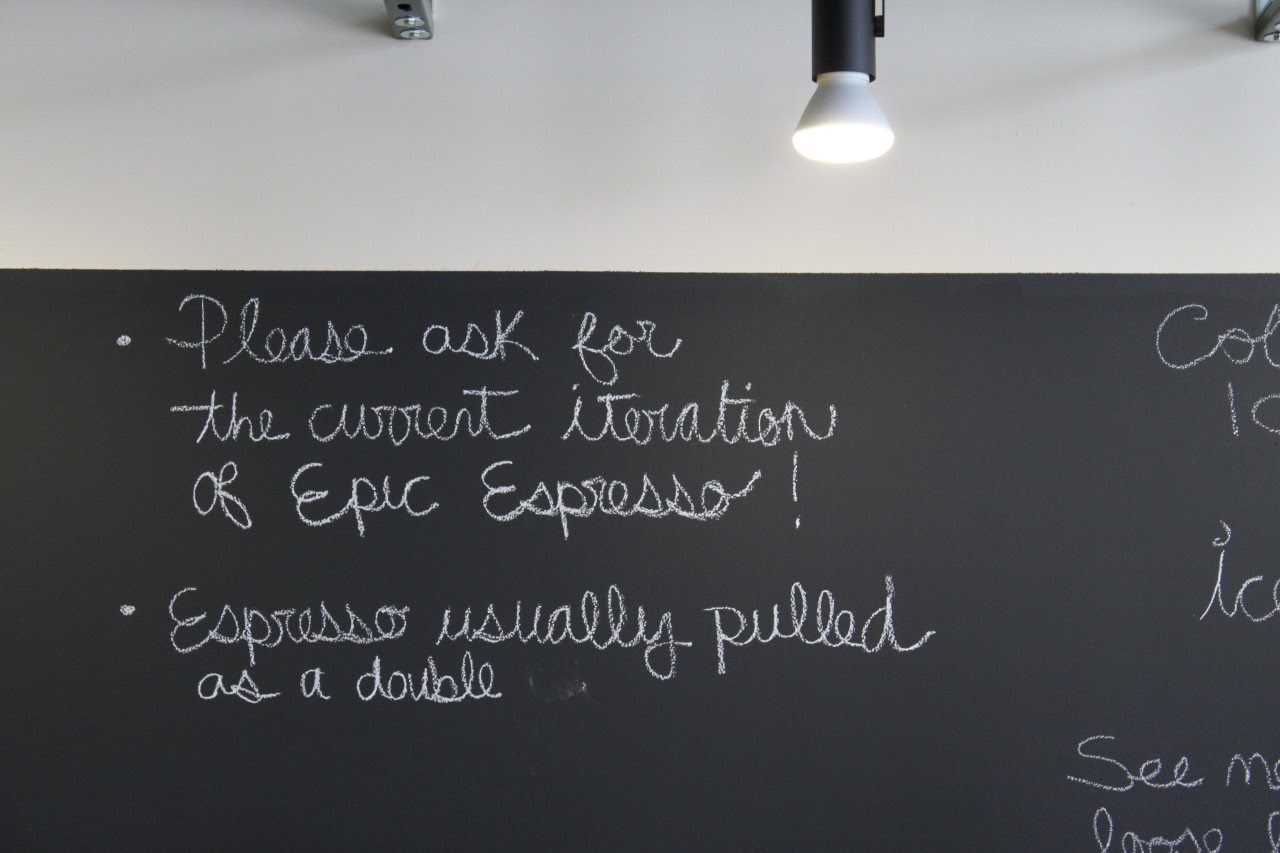 • Please ask for
the current iteration
of Epic Espresso!
• Espresso usually pulled
as a double
See
loose